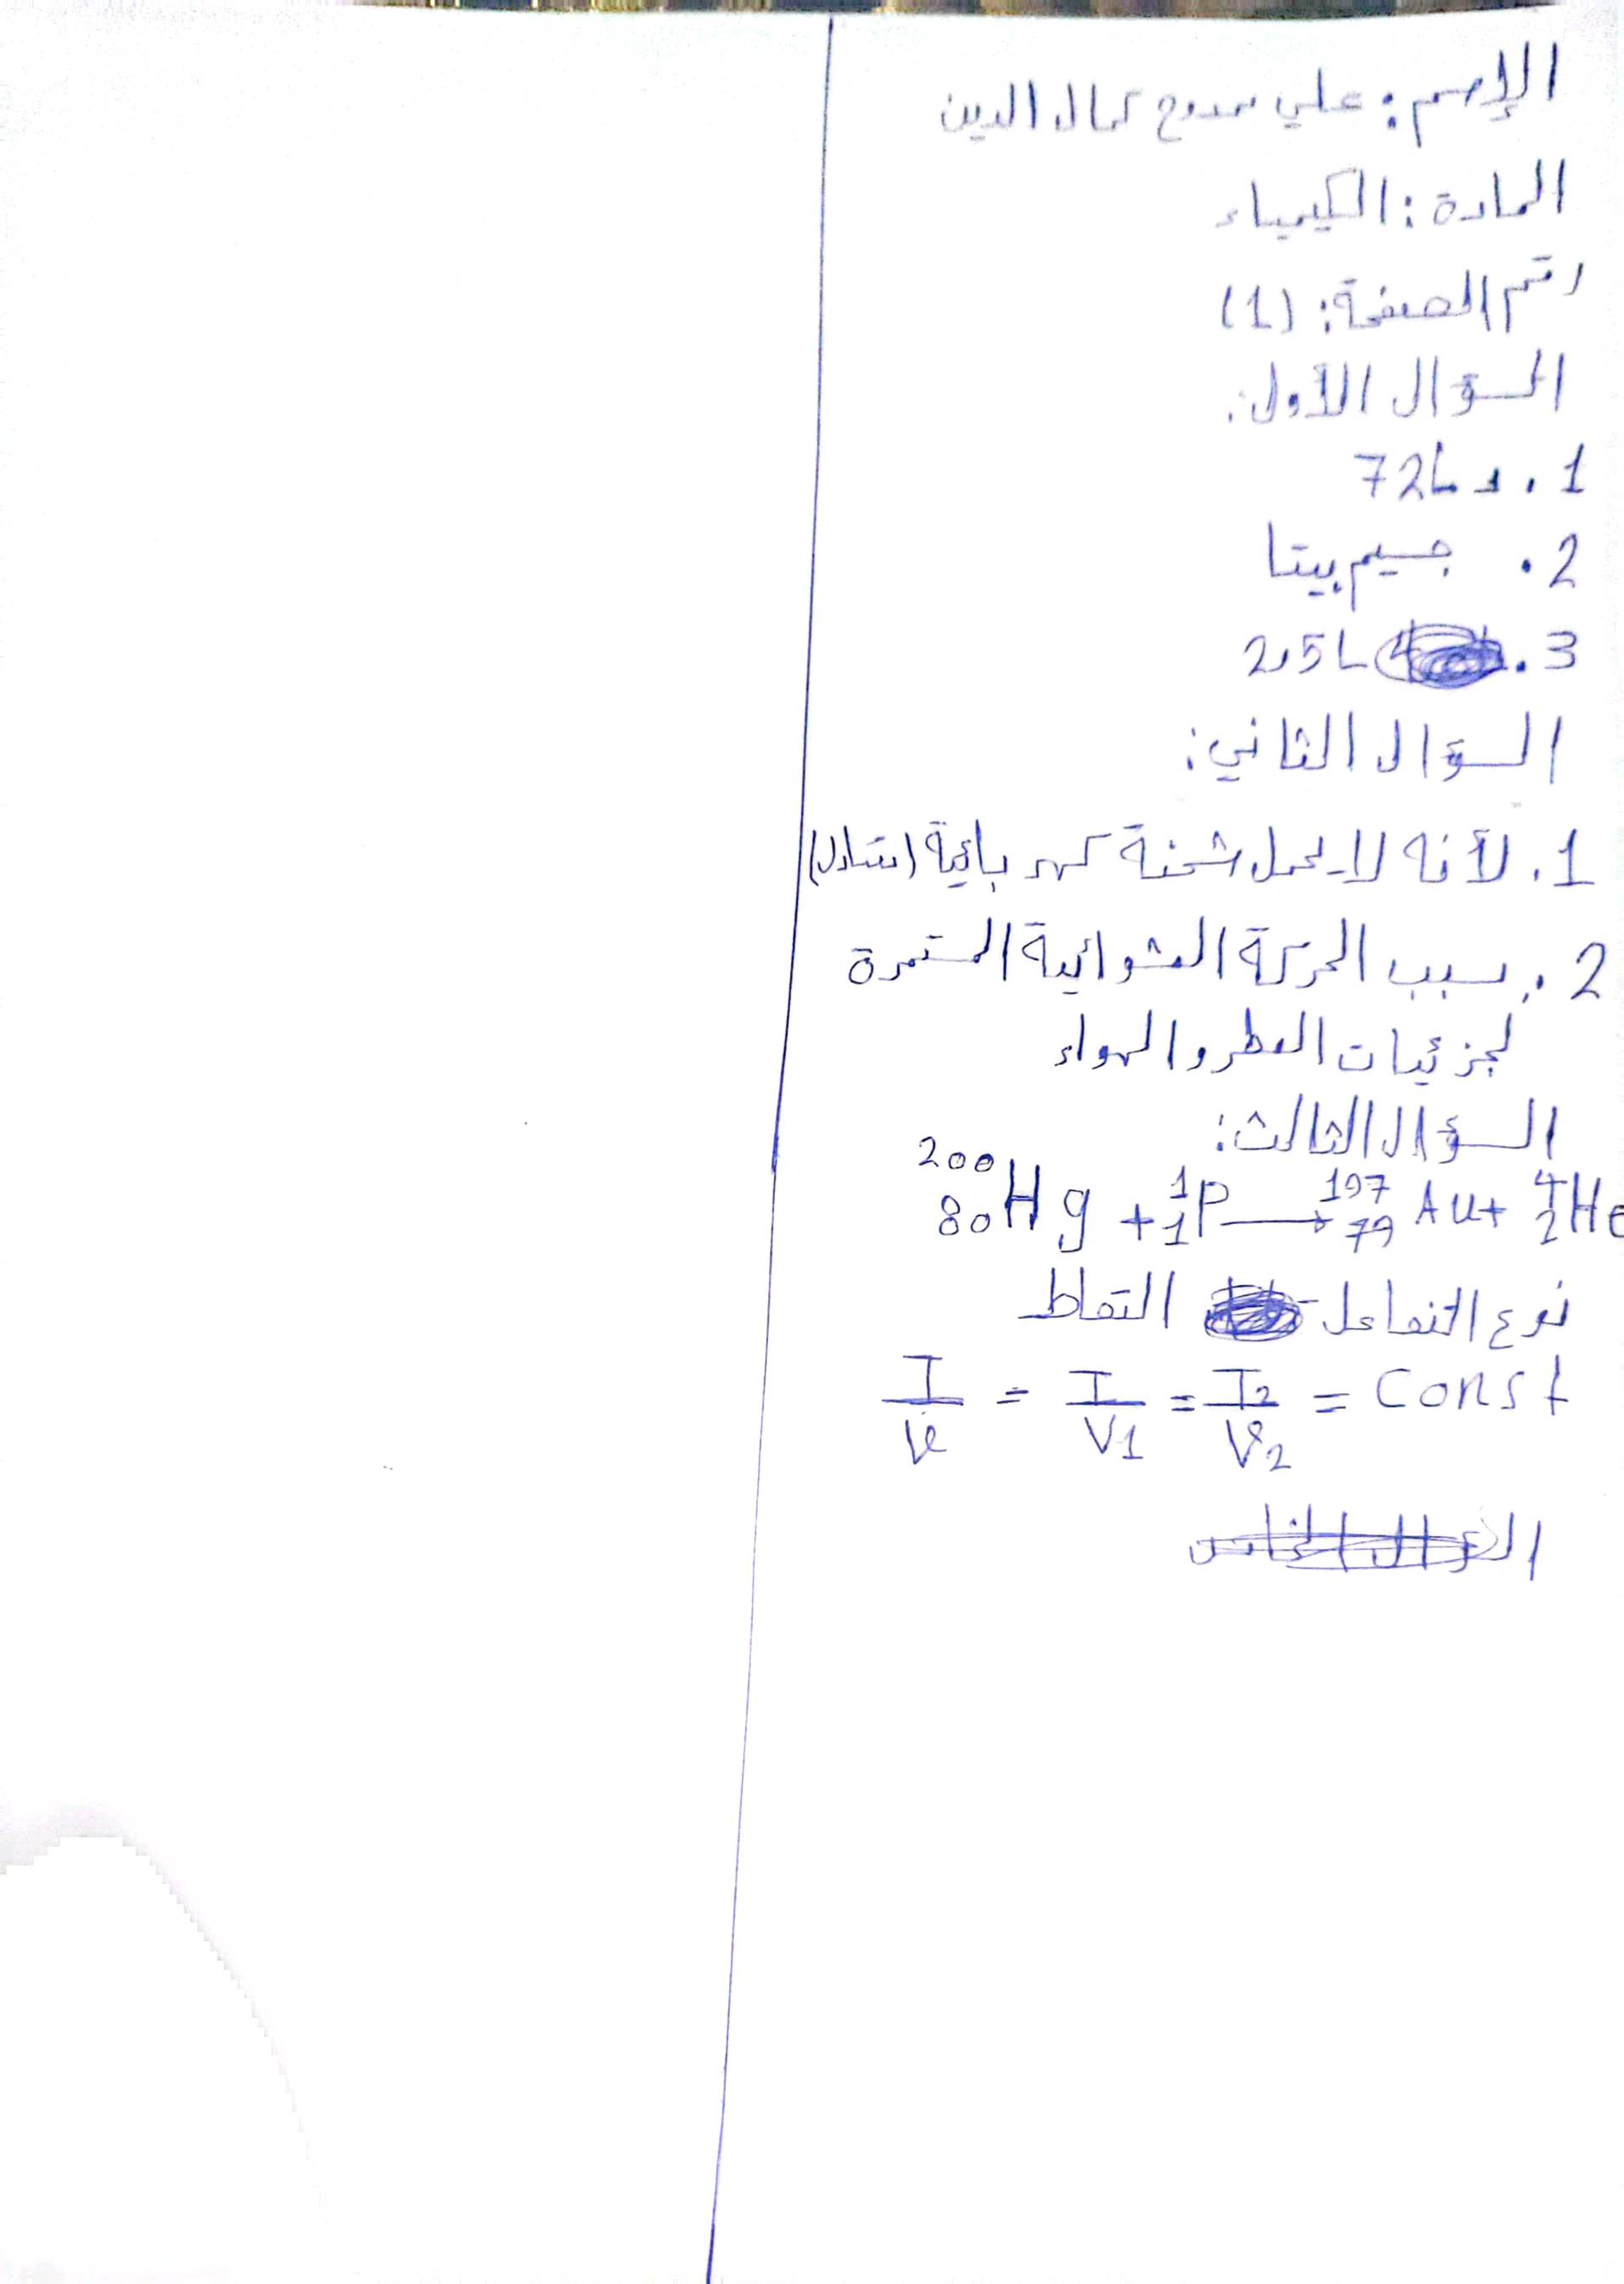 الإسم: علي ممدوح كمال الدين
المادة: الكيمياء
رقم الصفحة: (1)
السؤال الأول:
1. د 72L
2. جسيم بيتا
3. 2,5L
السؤال الثاني:
1. لأنه لا يحمل شحنة كهربائية (متعادل)
2. بسبب الحركة العشوائية المستمرة
لجزئيات العطر والهواء
السؤال الثالث:
²⁰⁰₈₀Hg + ¹₁P → ¹⁹⁷₇₉Au + ⁴₂He
نوع التفاعل التقاط
I/V = I/V1 = I2/V2 = Const